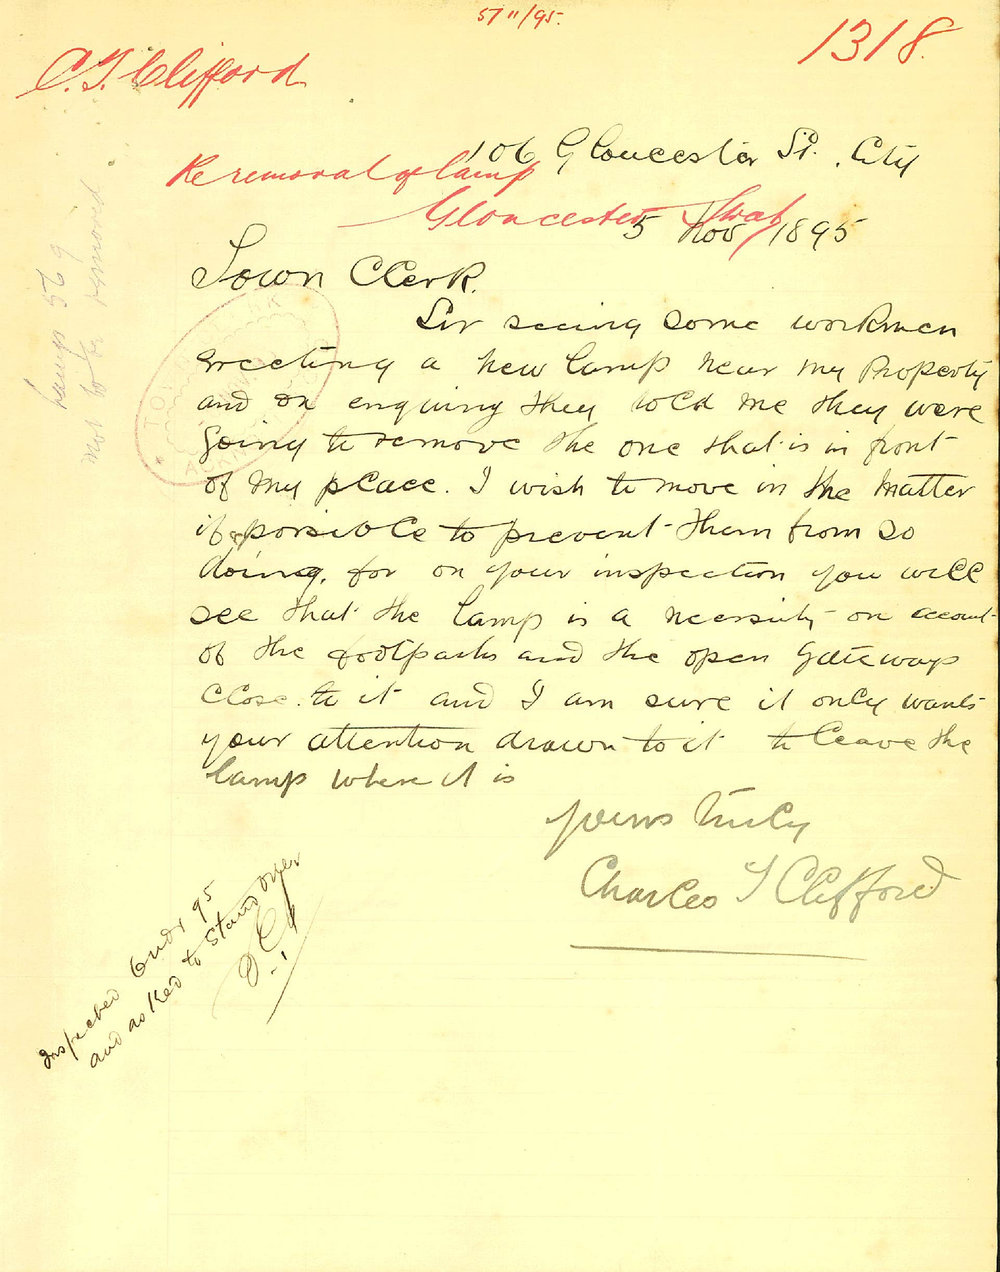 5/11/95.
1318.
C.T. Clifford
106 Gloucester St. City
Re removal of lamp
Gloucester Street
5 Nov 1895
Town Clerk.
Sir seeing some workmen
erecting a new lamp near my Property
and on enquiring they told me they were
going to remove the one that is in front
of my place. I wish to move in the matter
if possible to prevent them from so
doing, for on your inspection you will
see that the lamp is a necessity on account
of the footpaths and the open gateways
close to it and I am sure it only wants
your attention drawn to it to leave the
lamp where it is
yours truly
Charles T Clifford
Lamp 569
not to be removed
Inspected 6 Nov 95
and asked to stand over
TOWN CLERK